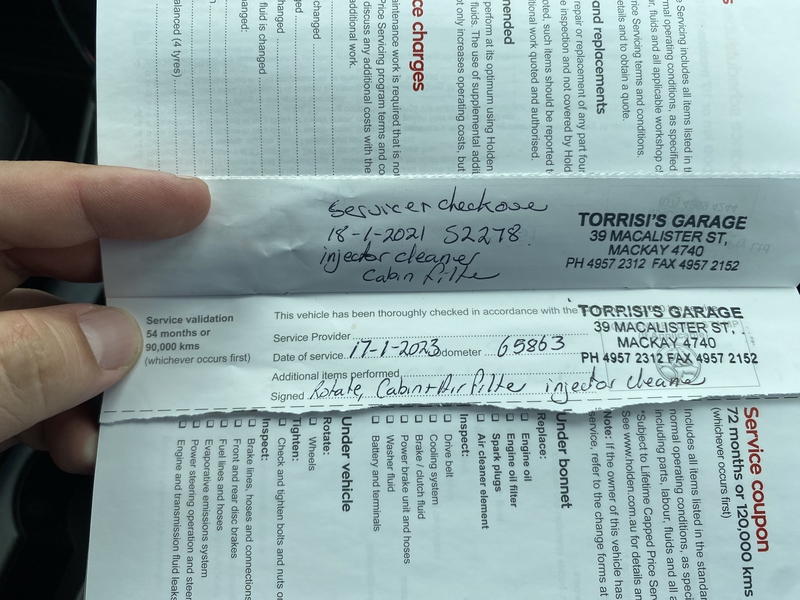 Service r checkover
18-1-2021 52278
injector cleaner
Cabin filte
TORRISI'S GARAGE
39 MACALISTER ST,
MACKAY 4740
PH 4957 2312 FAX 4957 2152
Service validation
54 months or
90,000 kms
(whichever occurs first)
This vehicle has been thoroughly checked in accordance with the
Service Provider
Date of service 17-1-2023 Odometer 65863
Additional items performed
Signed Rotate, Cabin + Air filter injector cleaner
TORRISI'S GARAGE
39 MACALISTER ST,
MACKAY 4740
PH 4957 2312 FAX 4957 2152
ce charges
intenance work is required that is no
Price Servicing program terms and co
discuss any additional costs with the
additional work.
changed
changed
fluid is changed
changed:
alanced (4 tyres)
mended
perform at its optimum using Holden
fluids. The use of supplemental addit
ot only increases operating costs, but
and replacements
repair or replacement of any part four
e inspection and not covered by Hold
oted, such items should be reported t
itional work quoted and authorised.
e Servicing includes all items listed in th
rmal operating conditions, as specified
r, fluids and all applicable workshop c
rice Servicing terms and conditions.
etails and to obtain a quote.
Service coupon
72 months or 120,000 kms
(whichever occurs first)
Includes all items listed in the standar
normal operating conditions, as speci
including parts, labour, fluids and all a
*Subject to Lifetime Capped Price Serv
See www.holden.com.au for details an
Note: If the owner of this vehicle has
service, refer to the change forms at
Under bonnet
Replace:
Engine oil
Engine oil filter
Spark plugs
Air cleaner element
Inspect:
Drive belt
Cooling system
Brake / clutch fluid
Power brake unit and hoses
Washer fluid
Battery and terminals
Under vehicle
Rotate:
Wheels
Tighten:
Check and tighten bolts and nuts o
Inspect:
Brake lines, hoses and connections
Front and rear disc brakes
Fuel lines and hoses
Evaporative emissions system
Power steering operation and steer
Engine and transmission fluid leaks